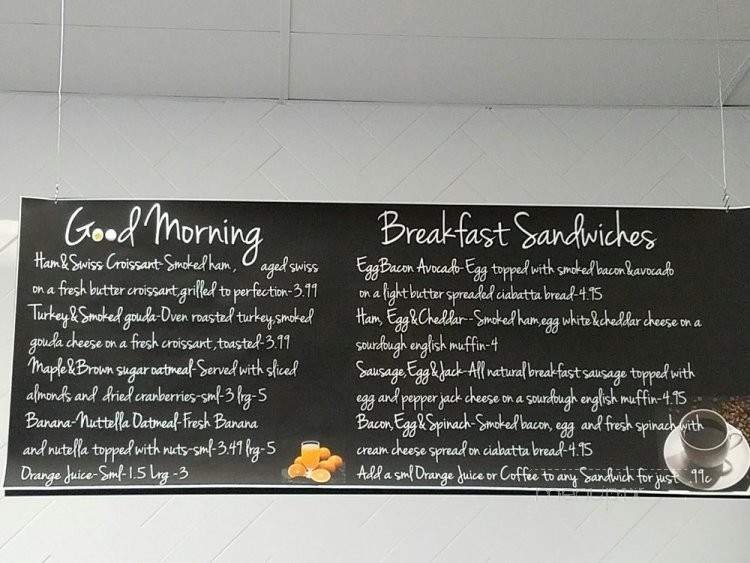 Good Morning
Ham & Swiss Croissant-Smoked ham, aged swiss
on a fresh butter croissant,grilled to perfection-3.99
Turkey & Smoked gouda-Oven roasted turkey,smoked
gouda cheese on a fresh croissant, toasted-3.99
Maple & Brown sugar oatmeal-Served with sliced
almonds and dried cranberries-sml-3 lrg-5
Banana-Nuttella Oatmeal-Fresh Banana
and nutella topped with nuts-sml-3.49 lrg-5
Orange Juice-Sml-1.5 Lrg -3
Breakfast Sandwiches
Egg Bacon Avocado-Egg topped with smoked bacon & avocado
on a light butter spreaded ciabatta bread-4.95
Ham, Egg & Cheddar--Smoked ham,egg white & cheddar cheese on a
sourdough english muffin-4
Sausage, Egg & Jack-All natural breakfast sausage topped with
egg and pepper jack cheese on a sourdough english muffin-4.95
Bacon, Egg & Spinach-Smoked bacon, egg and fresh spinach with
cream cheese spread on ciabatta bread-4.95
Add a sml Orange Juice or Coffee to any Sandwich for just .99c